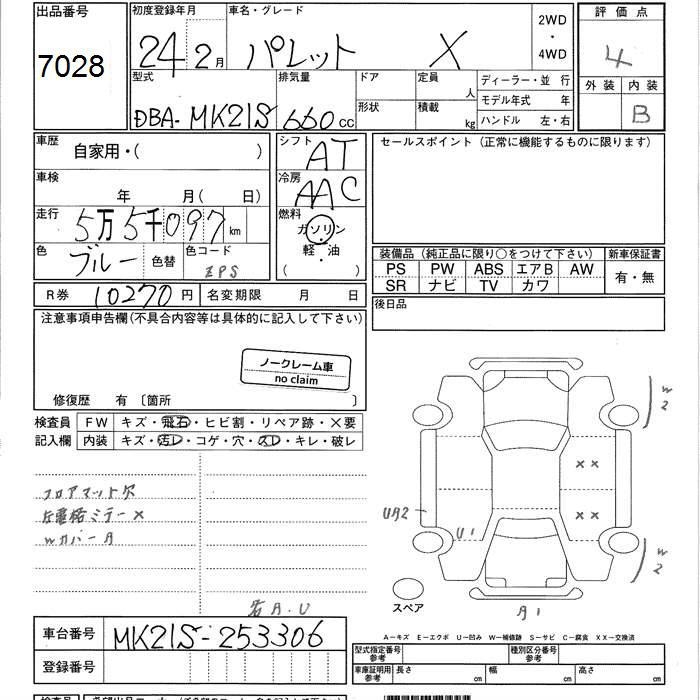 出品番号
7028
初度登録年月
24 2月
車名・グレード
パレット X
2WD
・
4WD
評価点
4
外装 内装
B
型式
DBA-MK21S
排気量
660cc
ドア
形状
定員
人
積載
kg
ディーラー・並 行
モデル年式 年
ハンドル 左・右
車歴
自家用・( )
シフト
AT
セールスポイント (正常に機能するものに限ります)
車検
年 月( 日)
冷房
AAC
走行
5万5千097km
燃料
ガソリン
軽・油
( )
色
ブルー
色替
色コード
ZPS
装備品 (純正品に限り○をつけて下さい)
新車保証書
PS PW ABS エアB AW
SR ナビ TV カワ
有・無
R券 10270円
名変期限 月 日
後日品
注意事項申告欄(不具合内容等は具体的に記入して下さい)
ノークレーム車
no claim
修復歴 有 〔箇所 〕
検査員
記入欄
FW キズ・飛石・ヒビ割・リペア跡・×要
内装 キズ・汚レ・コゲ・穴・スレ・キレ・破レ
フロアマット欠
ミラー×
Wカバー
A.U
W2
××
××
UA2
U1
W2
A1
スペア
A-キズ E-エクボ U-凹み W-補修跡 S-サビ C-腐食 XX-交換済
車台番号
MK21S-253306
登録番号
型式指定番号
参考
種別区分番号
参考
車庫証明用
参考
長さ cm
幅 cm
高さ cm